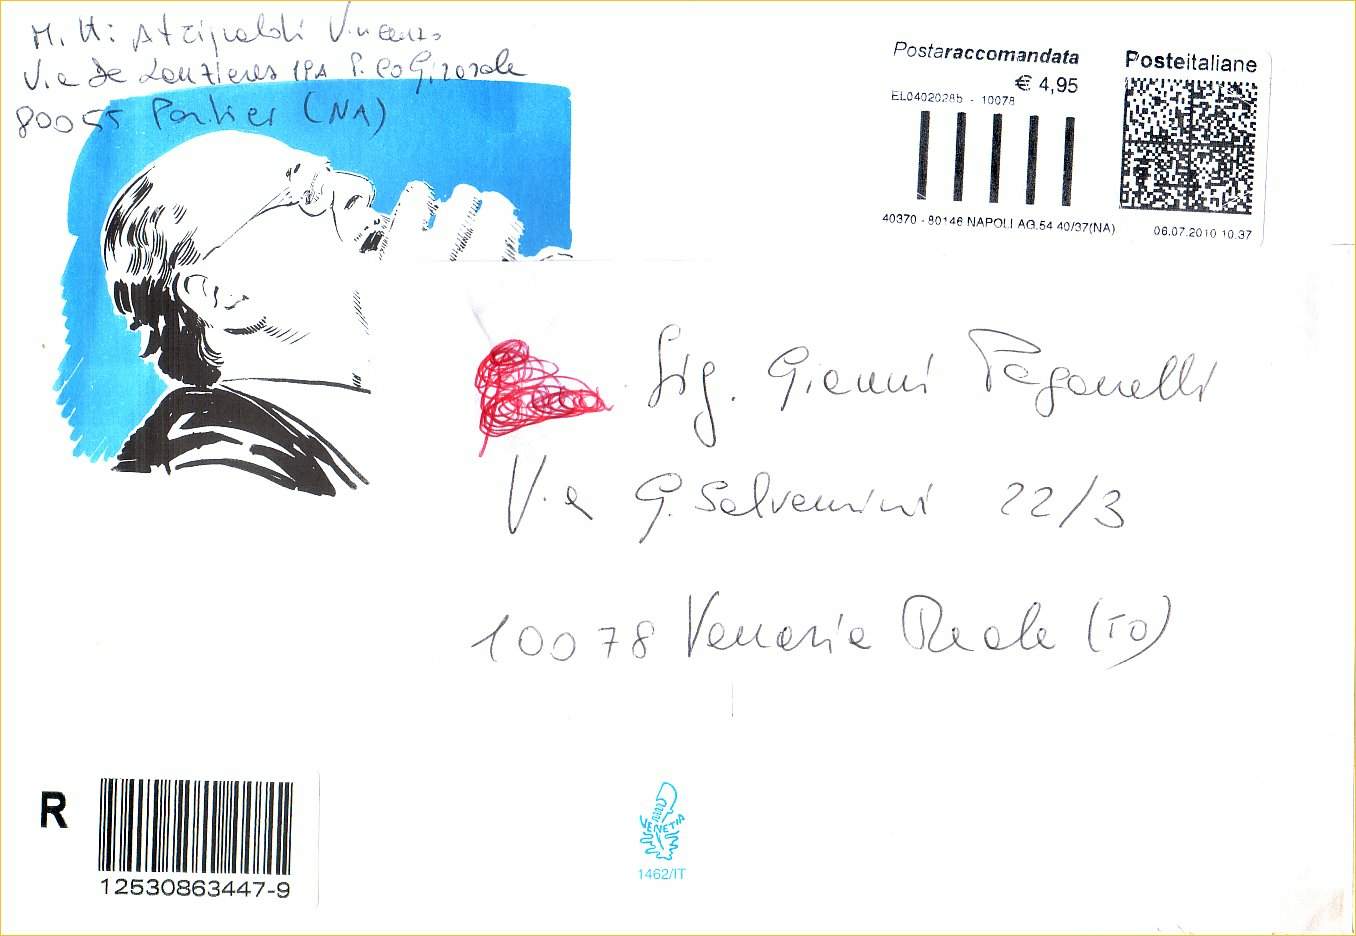 M. H: Atripaldi Vincenzo
Via De Lauzieres 19A P. co Girasole
80055 Portici (NA)
Postaraccomandata
€ 4,95
EL0402028b - 10078
40370 - 80146 NAPOLI AG.54 40/37(NA)
Posteitaliane
06.07.2010 10.37
Sig. Gianni Paganelli
Via G. Salvemini 22/3
10078 Venaria Reale (TO)
R
12530863447-9
VENETIA
1462/IT